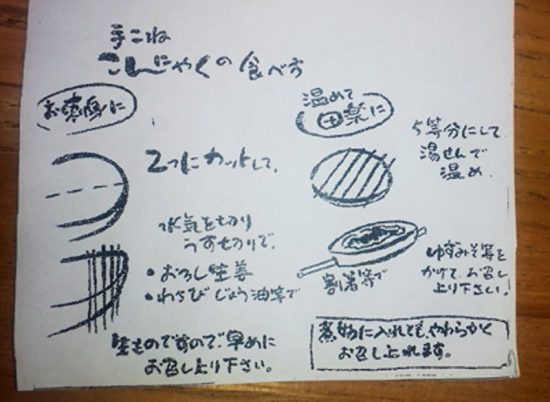 手こね
こんにゃくの食べ方
お刺身に
2つにカットして、
水気を切り
うす切りで、
・おろし生姜
・わさびじょう油等で
生ものですので、早めに
お召し上り下さい。
温めて
田楽に
5等分にして
湯せんで
温め、
割箸等で
ゆずみそ等を
かけて、お召し
上り下さい。
煮物に入れても、やわらかく
お召し上れます。